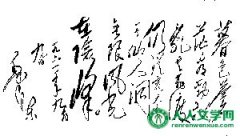 暮色蒼
茫看劲松
乱雲飛渡
仍從容天生
一个仙人洞
無限風光
在險峰
一九六一年九月
九日
毛澤东
人人文学网
renrenwenxue.com